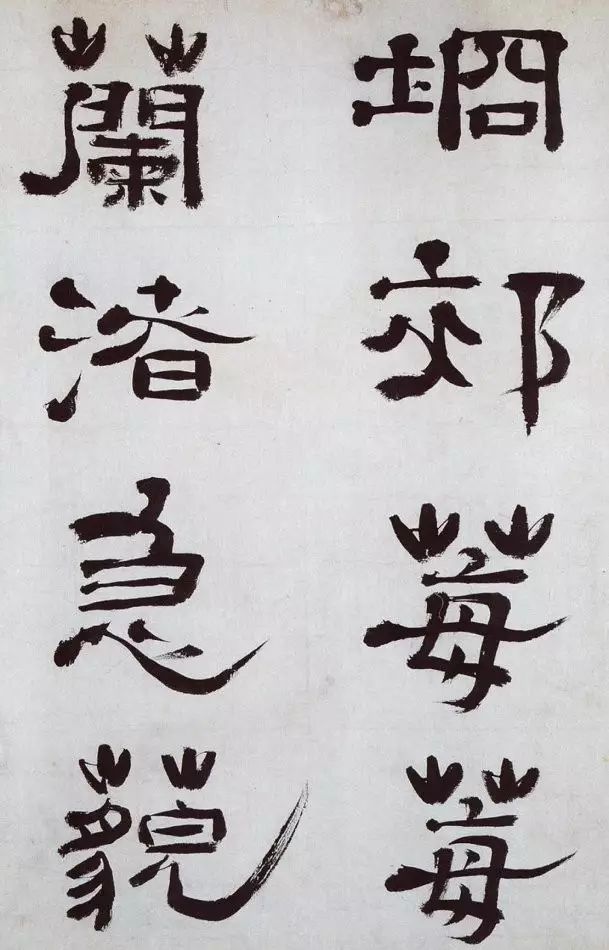 埛郊莓莓
蘭渚急藐